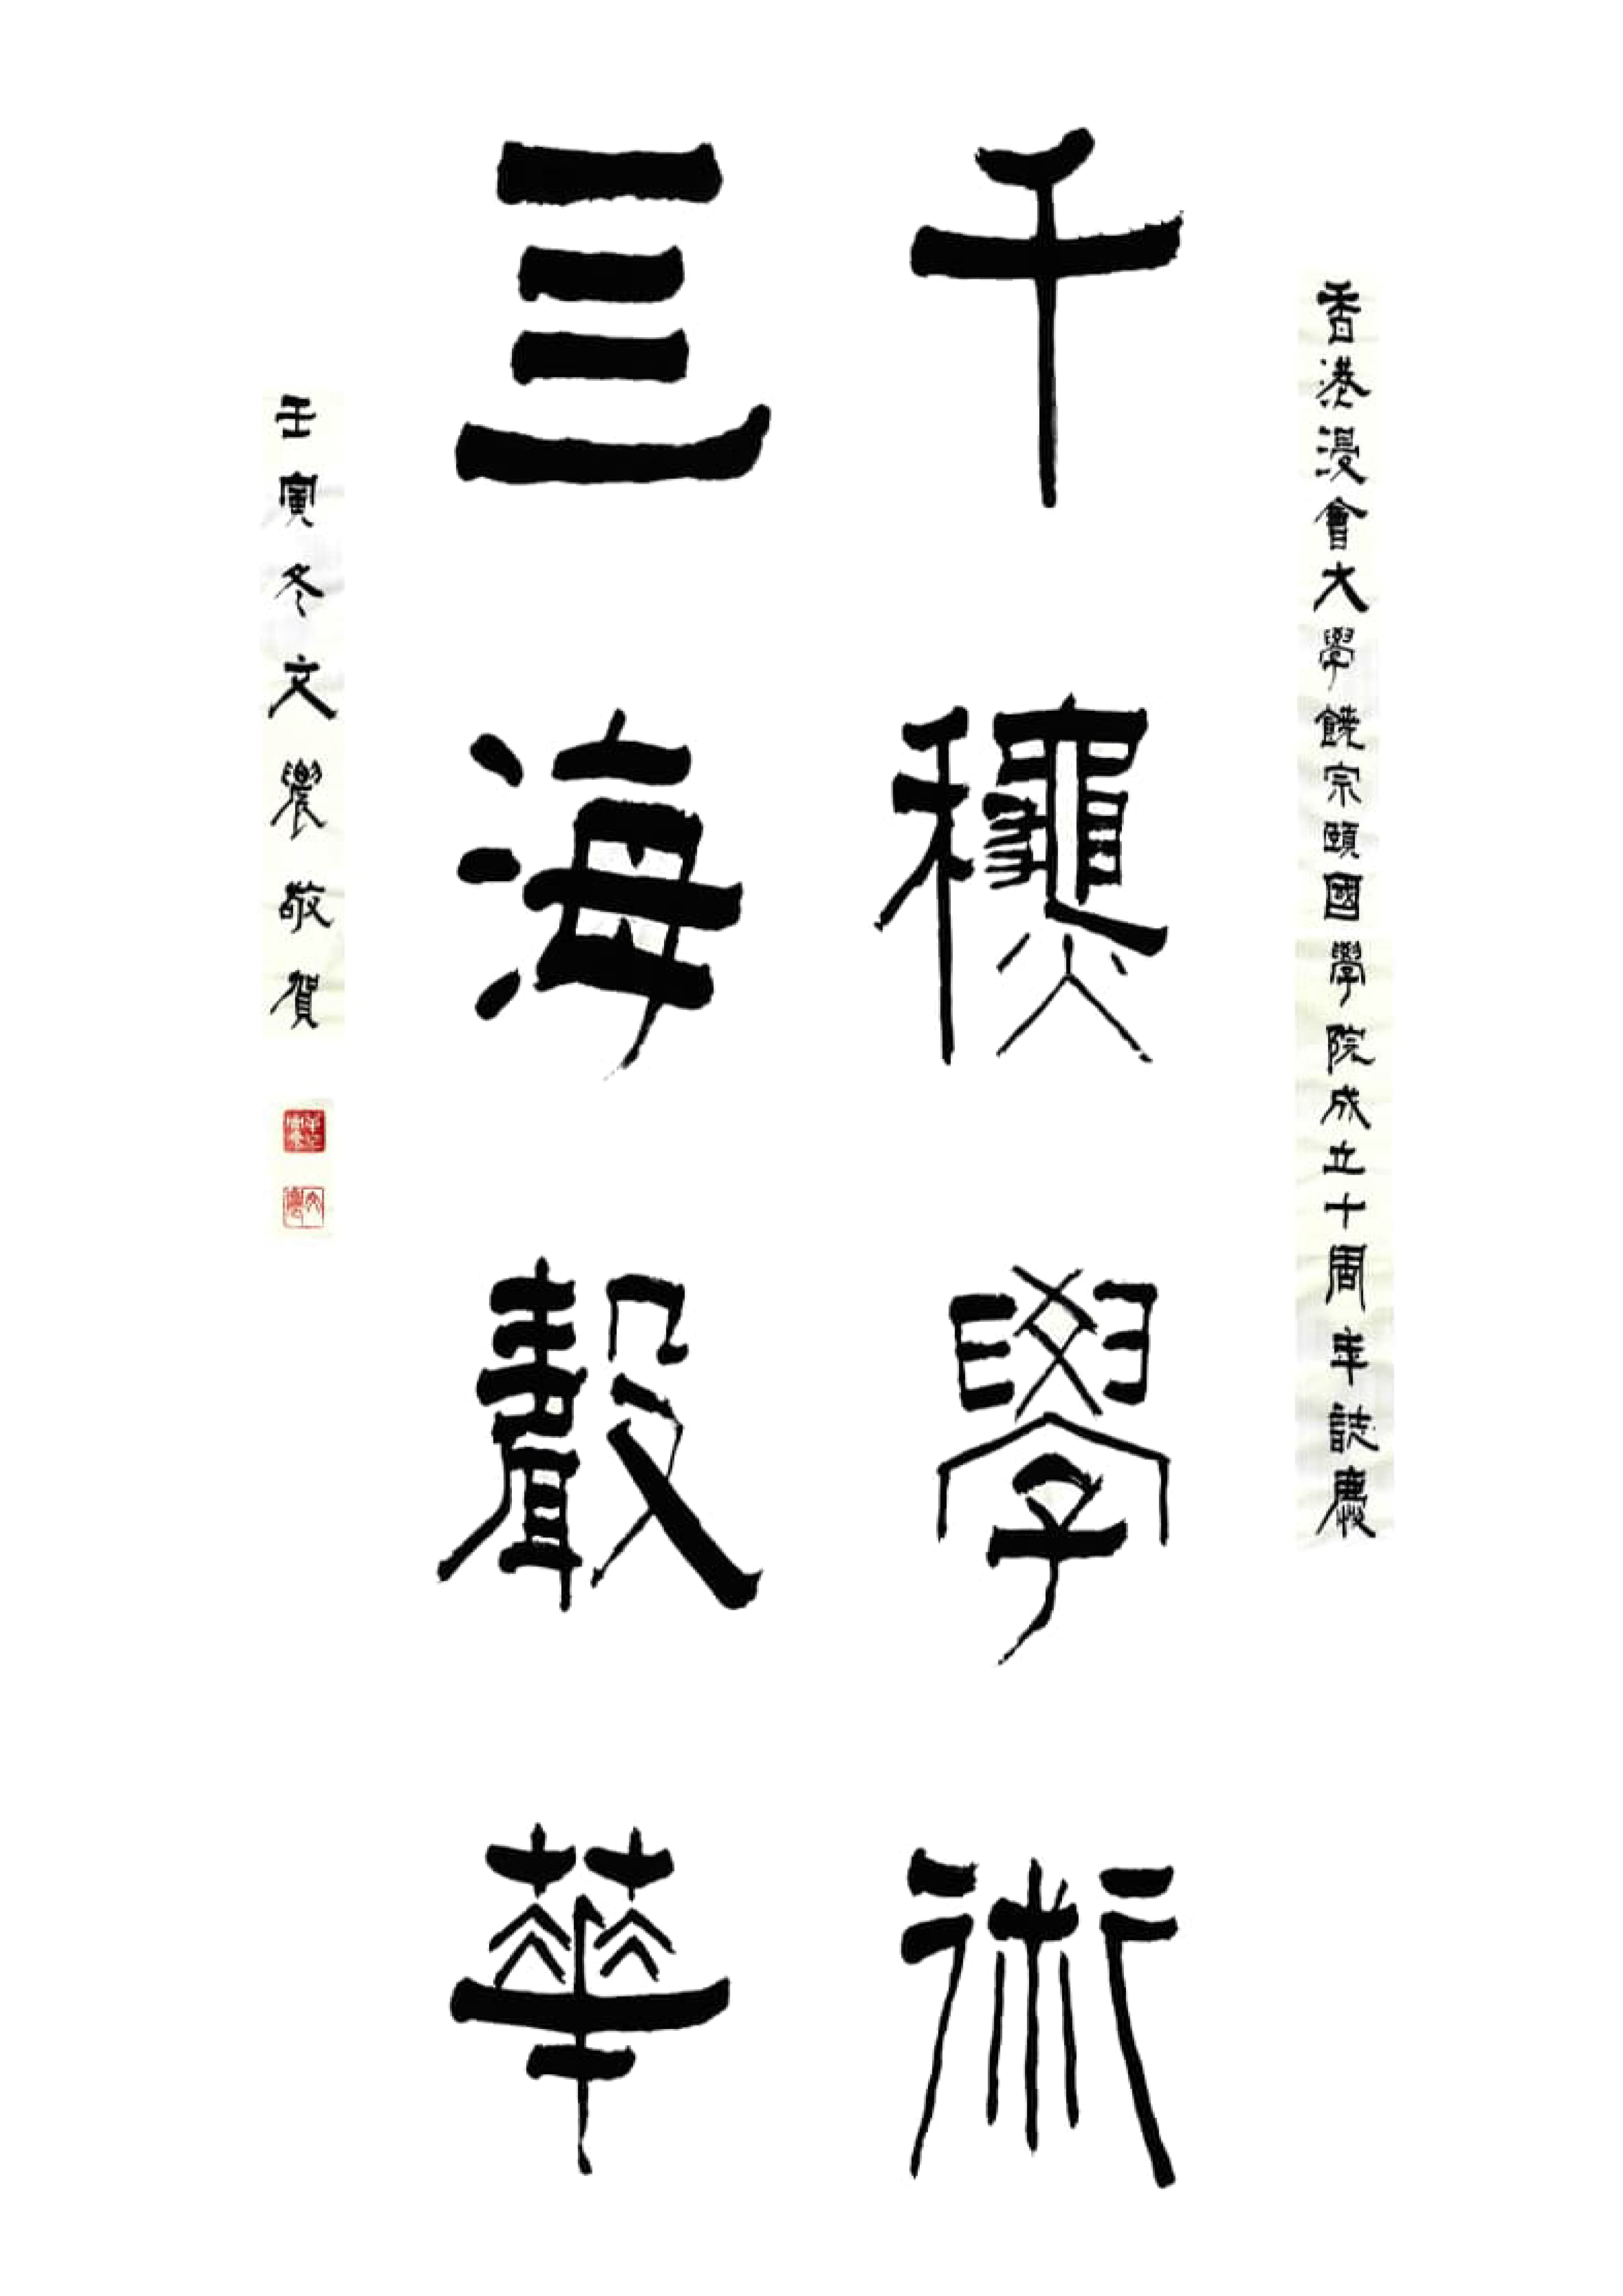 香港浸會大學饒宗頤國學院成立十周年誌慶
千𥤛學術
亖海聲華
壬寅冬文農敬賀